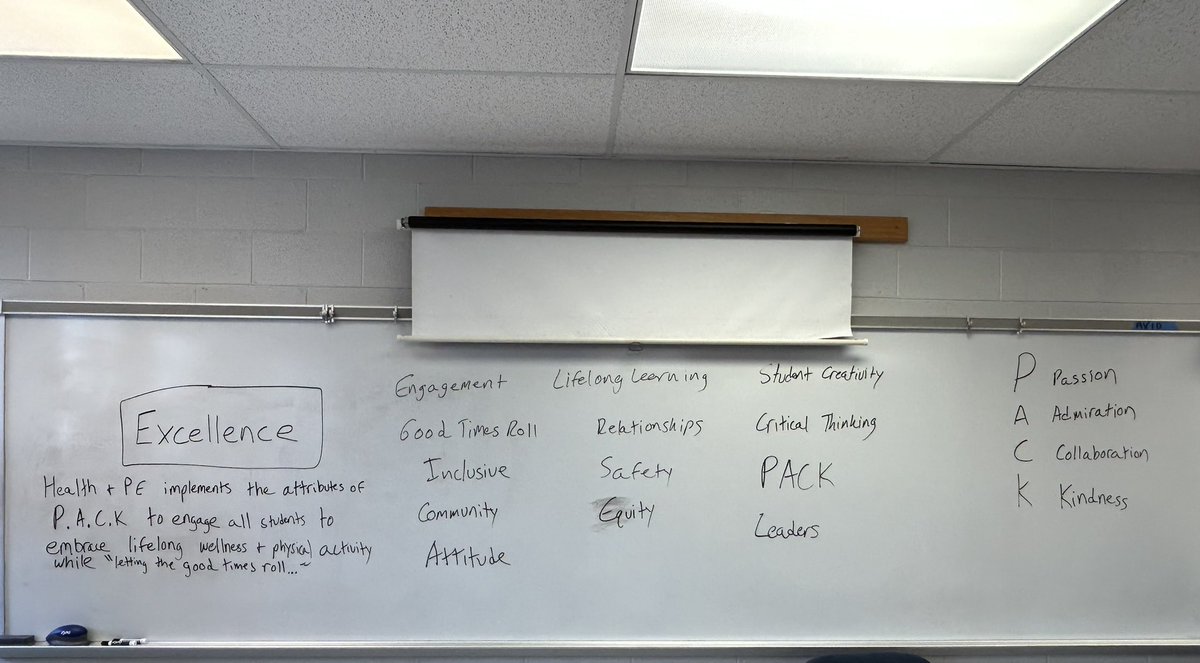 Excellence
Health + PE implements the attributes of
P.A.C.K to engage all students to
embrace lifelong wellness + physical activity
while "letting the good times roll...~
Engagement
Good Times Roll
Inclusive
Community
Attitude
Lifelong Learning
Relationships
Safety
Equity
Student Creativity
Critical Thinking
PACK
Leaders
P Passion
A Admiration
C Collaboration
K Kindness
AVID